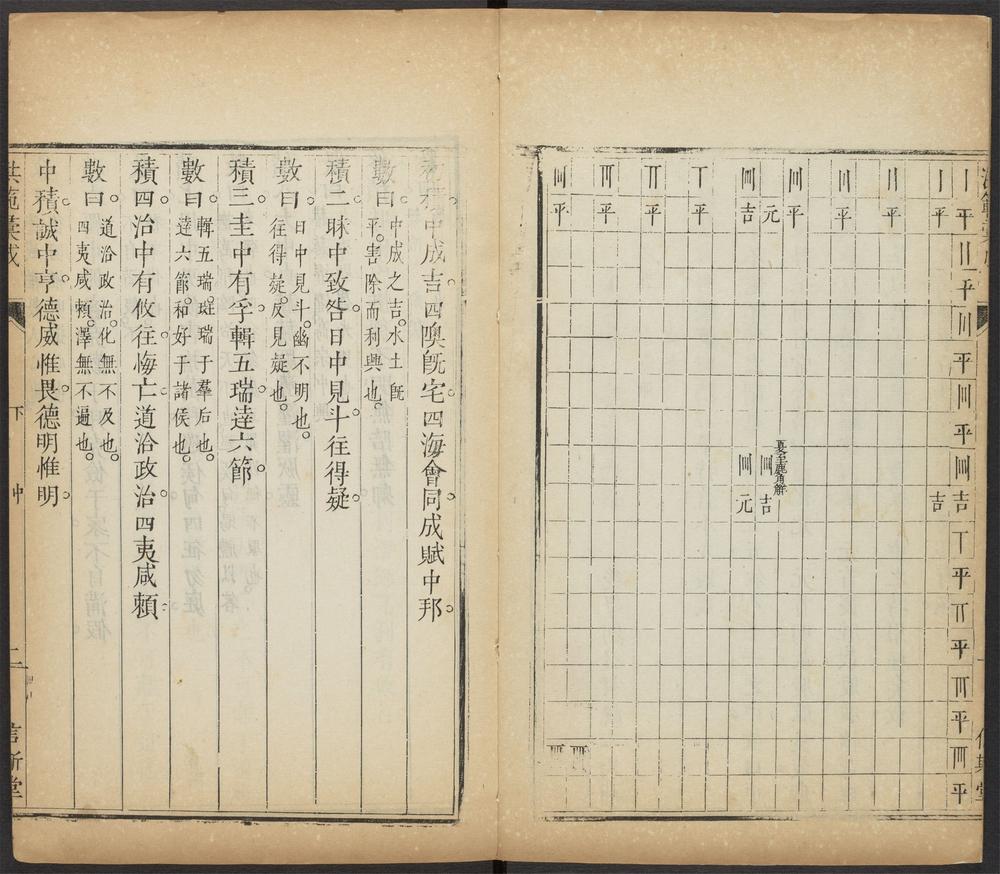 平
平
平
平
吉
平
平
平
平
平
吉
平
平
平
元
夏至鹿角解
吉
元
吉
平
平
平
平
中成吉四隩旣宅四海會同成賦中邦
數曰中成之吉水土旣
平害除而利興也
積二昧中致咎日中見斗往得疑
數曰日中見斗幽不明也
往得疑反見疑也
積三圭中有孚輯五瑞達六節
數曰輯五瑞班瑞于羣后也
達六節和好于諸侯也
積四治中有攸往悔亡道洽政治四夷咸賴
數曰道洽政治化無不及也
四夷咸賴澤無不遍也
中積誠中亨德威惟畏德明惟明
下 中 二